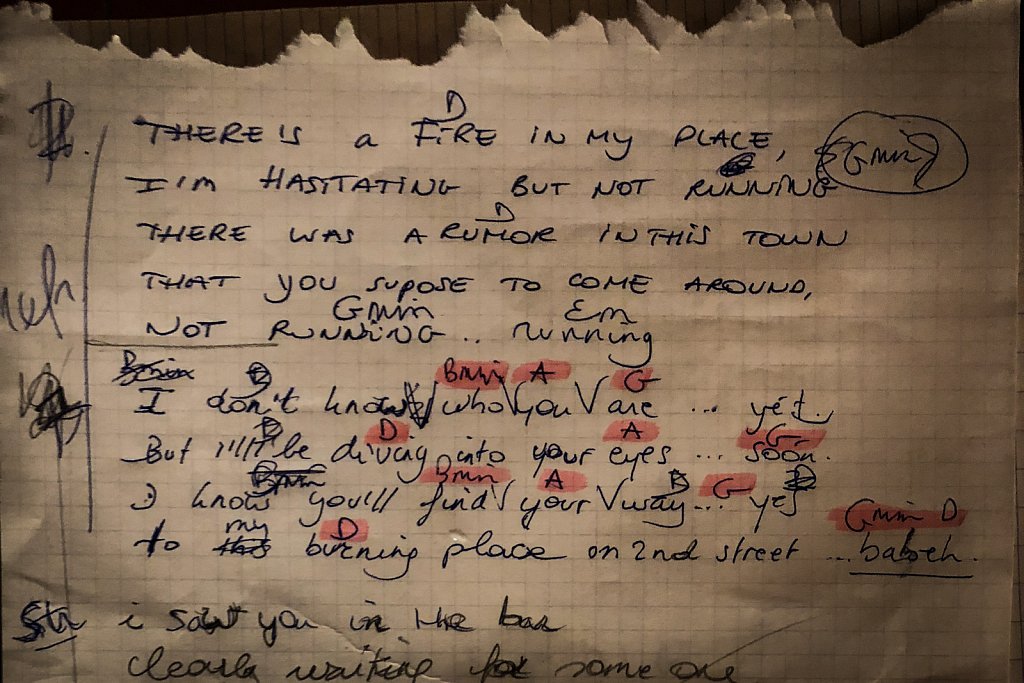 D
THERE IS a FIRE IN MY PLACE, (Gmin)
I'M HASITATING BUT NOT RUNNING
D
THERE WAS A RUMOR IN THIS TOWN
THAT YOU SUPOSE TO COME AROUND,
Gmin Em
NOT RUNNING.. running
Bmin D Bmin A G
I don't know who you are ... yet.
D D A G
But I'll be diving into your eyes ... soon.
Bmin Bmin A G
I know you'll find your way... yes
my D Gmin D
to this burning place on 2nd street ...babeh.
i saw you in the bar
clearly waiting for some one